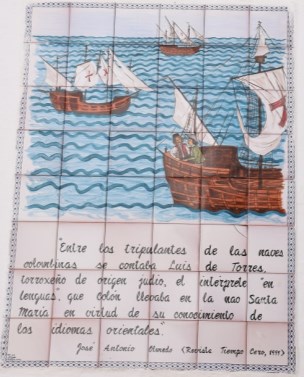 "Entre los tripulantes de las naves
colombinas se contaba Luis de Torres,
torroxeño de origen judío, el intérprete "en
lenguas", que Colón llevaba en la nao Santa
María en virtud de su conocimiento de
los idiomas orientales".
José Antonio (Revista Tiempo Cero, 1999)